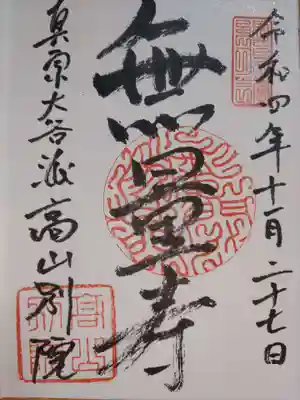 令和四年十一月二十七日
無量寿
真宗大谷派高山別院